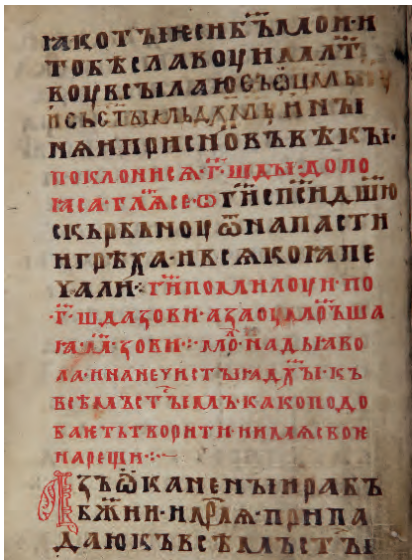 ꙗко тꙑ ѥси б҃ъ мои· и
тобѣ славоу и мл҃т
воу въсылаю съ ѿц҃мь и
и съ ст҃ыимь дх҃мь и нꙑ
нѧ и присно въ вѣкꙑ·
поклонисѧ· г҃· шдꙑ· допо
ꙗса· гл҃ѧ се· ѡ г҃и сп҃си дш҃ю
скърбьноу ѿ напасти
и грѣха· и всѧкоꙗ пе
чали ⁘ г҃и помилоуи· по
·г҃· шда зови· а за оумьръша
ꙗ· зови ⁘ мо҃· на дьꙗво
ла· и на нечистꙑꙗ дх҃ꙑ· къ
всѣмъ ст҃ꙑмъ· како подо
баѥть творити· и имѧ своѥ
нарещи ⁘
Азъ ѿканенꙑи рабъ
бж҃ии· припа
даю къ всѣмъ ст҃ꙑ